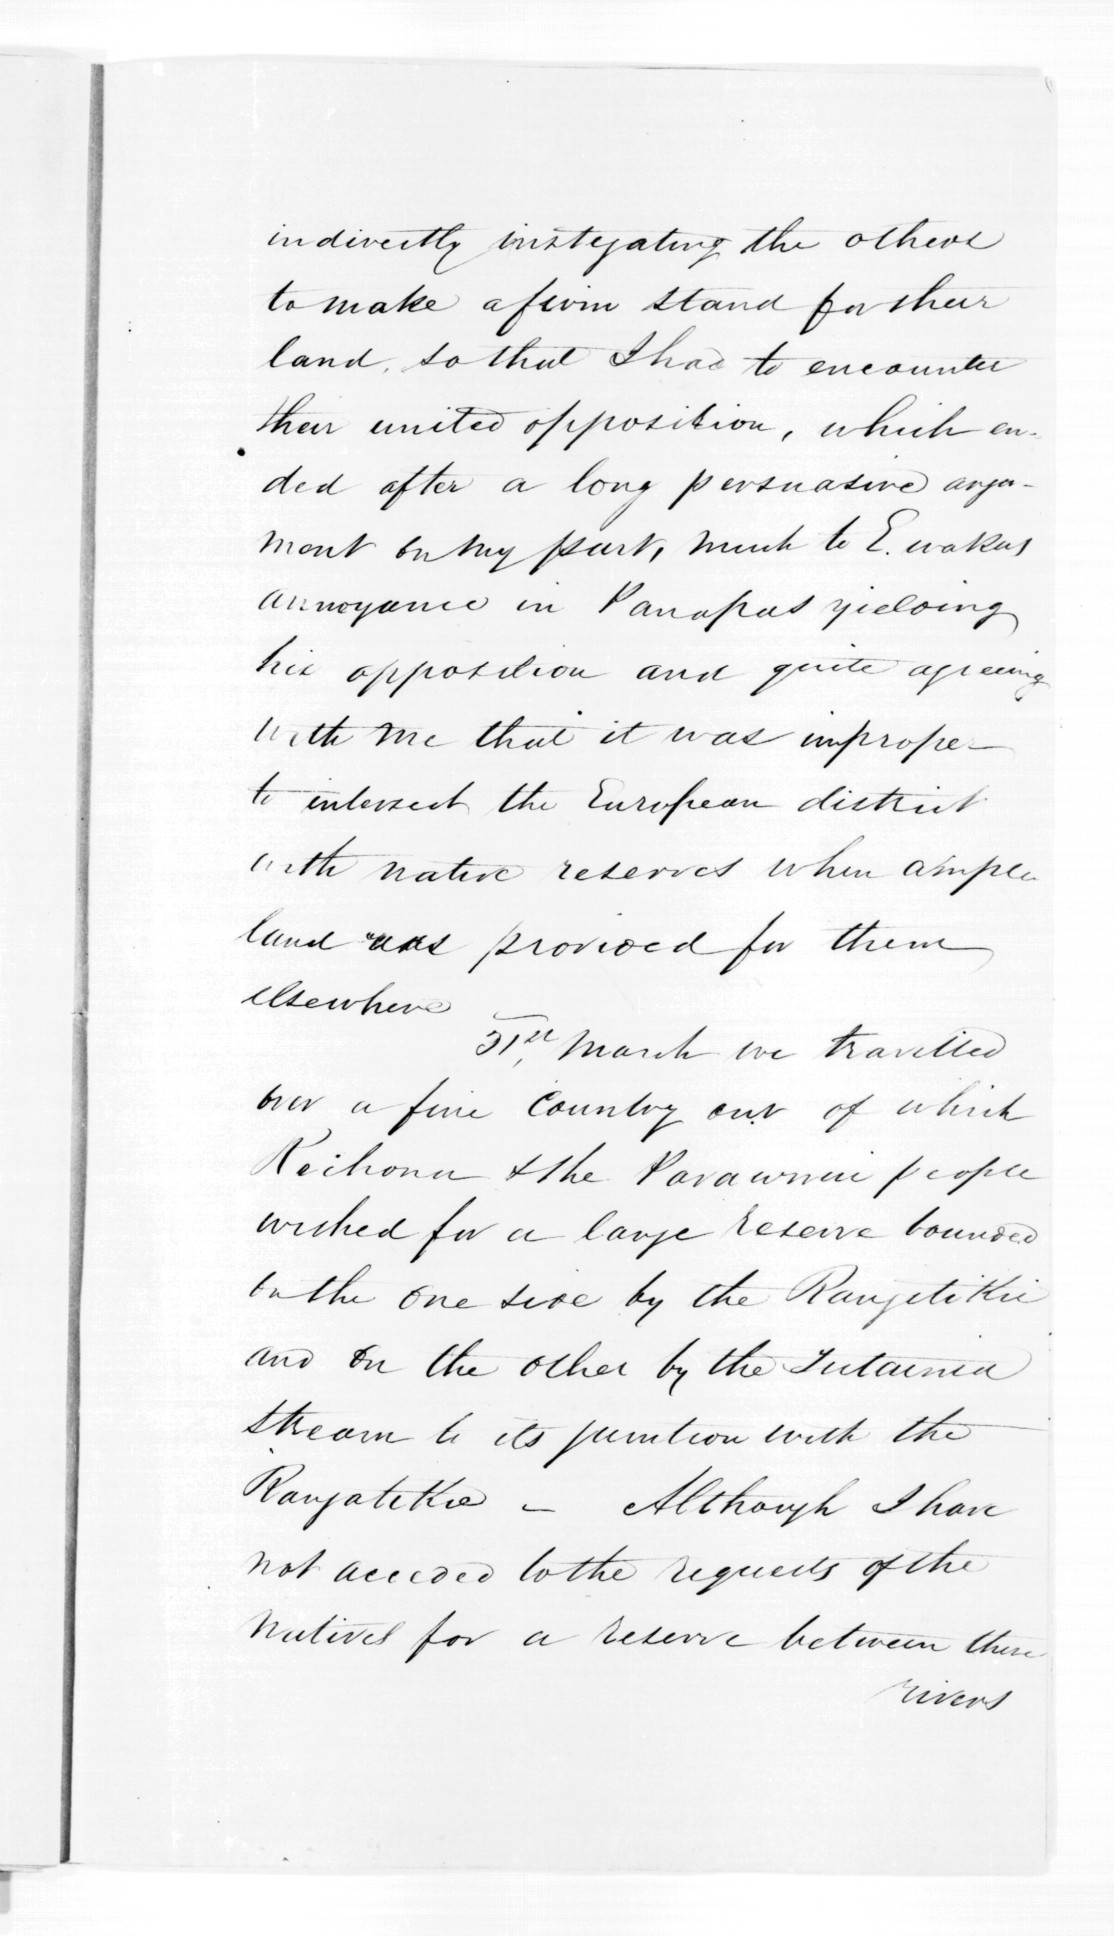 indirectly instegating the others
to make a firm stand for their
land, so that I had to encounter
their united opposition, which en-
ded after a long persuasive argu-
ment on my part, much to E. wakas
annoyance in Panapas yielding
his opposition and quite agreeing
with me that it was improper
to intersect the European district
with native reserves when ample
land was provided for them
elsewhere
31st March we travelled
over a fine Country out of which
Reihana & the Parawanui people
wished for a large reserve bounded
on the one side by the Rangitikie
and on the other by the Tutaenui
stream to its junction with the
Rangatikie - Although I have
not acceded to the requests of the
natives for a reserve between these
rivers